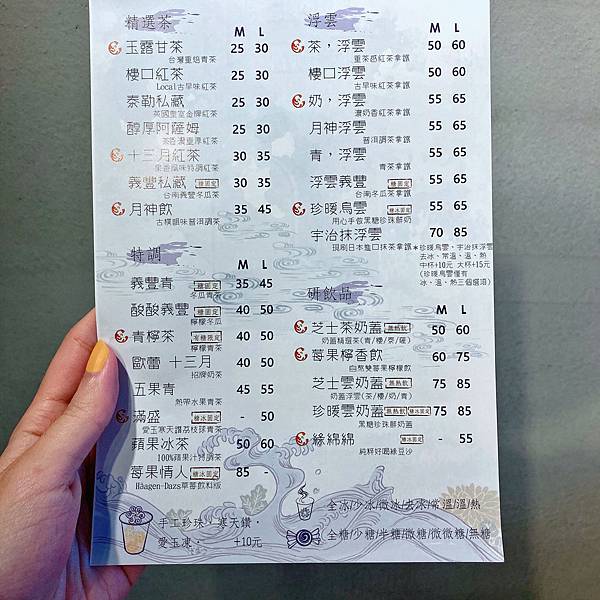 精選茶
M L
玉露甘茶 25 30
台灣重焙青茶
樓口紅茶 25 30
Local古早味紅茶
泰勒私藏 25 30
英國皇室金牌紅茶
醇厚阿薩姆 25 30
茶香濃重厚紅茶
十三月紅茶 30 35
果香風味特調紅茶
義豐私藏 糖固定 30 35
台南義豐冬瓜茶
月神飲 35 45
古樸韻味普洱調茶
特調
M L
義豐青 糖固定 35 45
冬瓜青茶
酸酸義豐 糖固定 40 50
檸檬冬瓜
青檸茶 40 50
檸檬青茶
歐蕾 十三月 40 50
招牌奶茶
五果青 45 55
熱帶水果青茶
滿盛 糖冰固定 - 50
愛玉寒天鑽荔枝球青茶
蘋果冰茶 50 60
100%蘋果汁特調茶
莓果情人 糖冰固定 85 -
Häagen-Dazs草莓飲料版
手工珍珠、寒天鑽、
愛玉凍, +10元
浮雲
M L
茶,浮雲 50 60
重茶感紅茶拿鐵
樓口浮雲 50 60
古早味紅茶拿鐵
奶,浮雲 55 65
濃奶香紅茶拿鐵
月神浮雲 55 65
普洱調茶拿鐵
青,浮雲 55 65
青茶拿鐵
浮雲義豐 糖固定 55 65
台南冬瓜拿鐵
珍暖烏雲 糖冰固定 55 65
用心手曾黑糖珍珠鮮奶
宇治抹浮雲 70 85
現刷日本進口抹茶拿鐵
*珍暖烏雲、宇治抹浮雲
去冰、常溫、溫、熱
中杯+10元 大杯+15元
(珍暖烏雲僅有
冰、溫、熱三個選項)
研飲品
M L
芝士茶奶蓋 無熱飲 50 60
奶蓋精選茶(青/樓/泰/醇)
莓果檸香飲 60 75
自熬雙莓果檸檬飲
芝士雲奶蓋 無熱飲 75 85
奶蓋浮雲(茶/樓/奶/青)
珍暖雲奶蓋 無熱飲 糖冰固定 75 85
黑糖珍珠鮮奶蓋
綠綿綿 糖冰固定 - 55
純粹好喝綠豆沙
全冰/少冰/微冰/去冰/常溫/溫/熱
全糖/少糖/半糖/微糖/微微糖/無糖